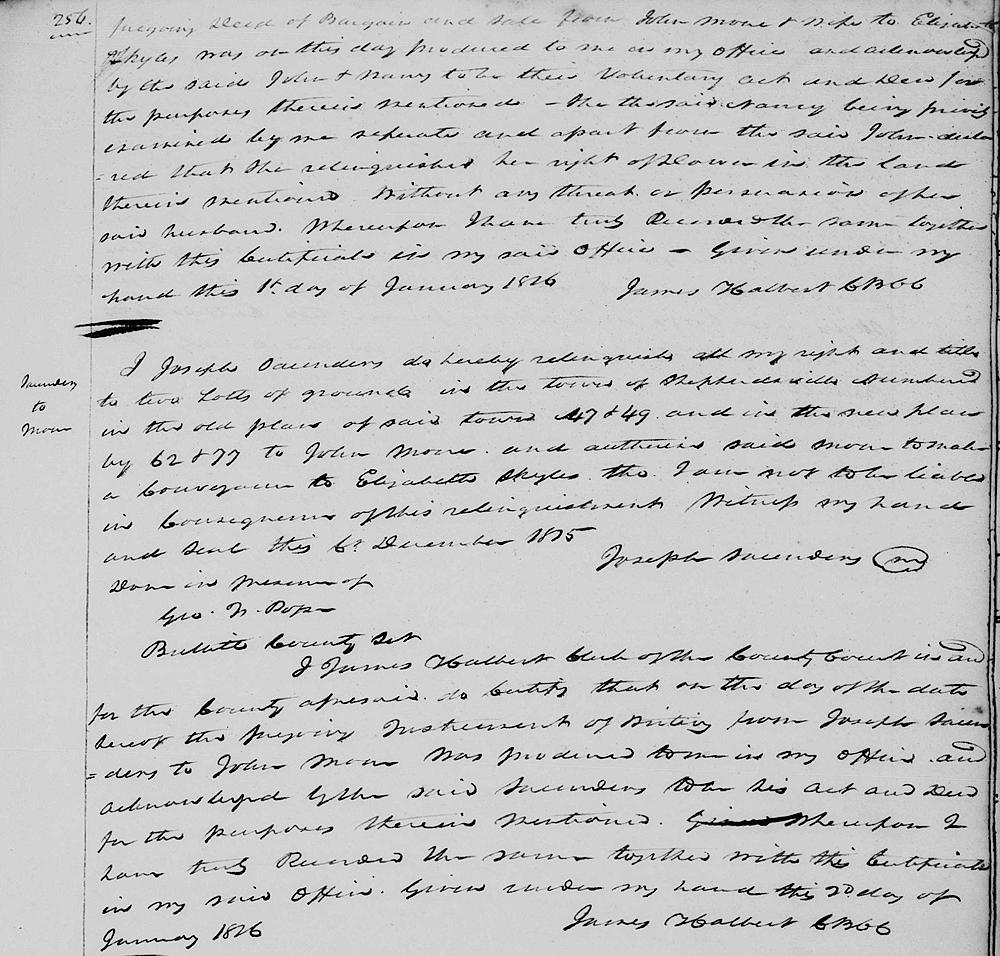 256.
foregoing Deed of Bargain and sale from John Moore & Wife to Elizabeth
Skyles was on this day produced to me in my office and acknowledged
by the said John & Nancy to be their Voluntary act and Deed for
the purposes therein mentioned - She the said Nancy being privily
examined by me seperate and apart from the said John decla
=red that She relinquished her right of Dower in the land
therein mentioned Without any threat or persuasion of her
said husband. Whereupon I have truly Recorded the same together
with this Certificate in my said Office - Given under my
hand this 1st day of January 1816
James Halbert CBCC
Saunders
to
Moore
I Joseph Saunders do hereby relinquish all my right and title
to two Lotts of ground in the town of Shepherdsville Numbered
in the old plan of said town 47 & 49 and in the new plan
by 62 & 77 to John Moore. and authorise said Moore to make
a Conveyance to Elizabeth Skyles tho. I am not to be liable
in Consequence of this relinquishment Witness my hand
and Seal this 6th December 1815
Joseph Saunders
Done in presence of
Geo. W. Pope
Bullitt County Sct
I James Halbert Clerk of the County Court in and
for the County aforesaid do Certify that on the day of the date
hereof the foregoing Instrument of Writing from Joseph Saun
=ders to John Moore Was produced to me in my office and
acknowledged by the said Saunders to be his act and Deed
for the purposes therein mentioned. Given Whereupon I
have truly Recorded the same together with this Certificate
in my said Office. Given under my hand this 2d day of
January 1816
James Halbert CBCC